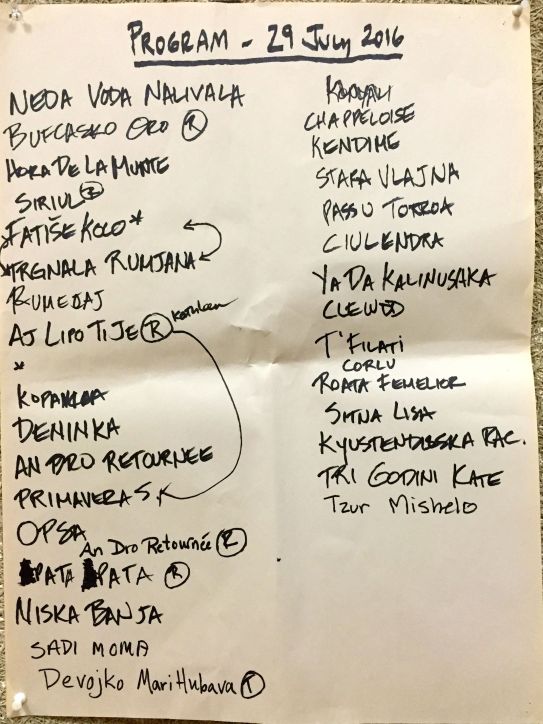 PROGRAM - 29 JULY 2016
NEDA VODA NALIVALA
BUFCASKO ORO Ⓡ
HORA DE LA MUNTE
SIRIUL Ⓡ
*FATIŠE KOLO*
*TRGNALA RUMJANA
RUMELAJ
AJ LIPO TI JE Ⓡ
*
KOPANICA
DENINKA
AN DRO RETOURNEE
PRIMAVERA S.
OPSA
An Dro Retournée Ⓡ
PATA PATA Ⓡ
NISKA BANJA
SADI MOMA
Devojko Mari Hubava Ⓣ
KONYALI
CHAPPELOISE
KENDIME
STARA VLAJNA
PASSU TORROA
CIULENDRA
YA DA KALINUSAKA
CLEWOD
T'FILATI
CORLU
ROATA FEMEILOR
SITNA LISA
KYUSTENDILSKA RAC.
TRI GODINI KATE
Tzur Mishelo